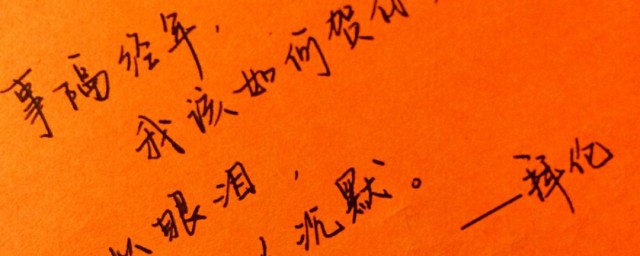 事隔经年，
我该如何贺你，
以眼泪，
，沉默。
——拜伦